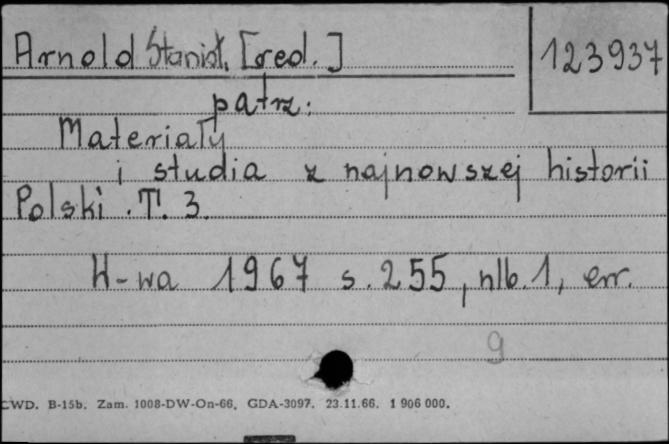 Arnold Stanisł. [red.]
123937
patrz:
Materiały
i studia z najnowszej historii
Polski. T. 3.
W-wa 1967 s. 255, nlb. 1, err.
9
CWD. B-15b. Zam. 1008-DW-On-66. GDA-3097. 23.11.66. 1 906 000.